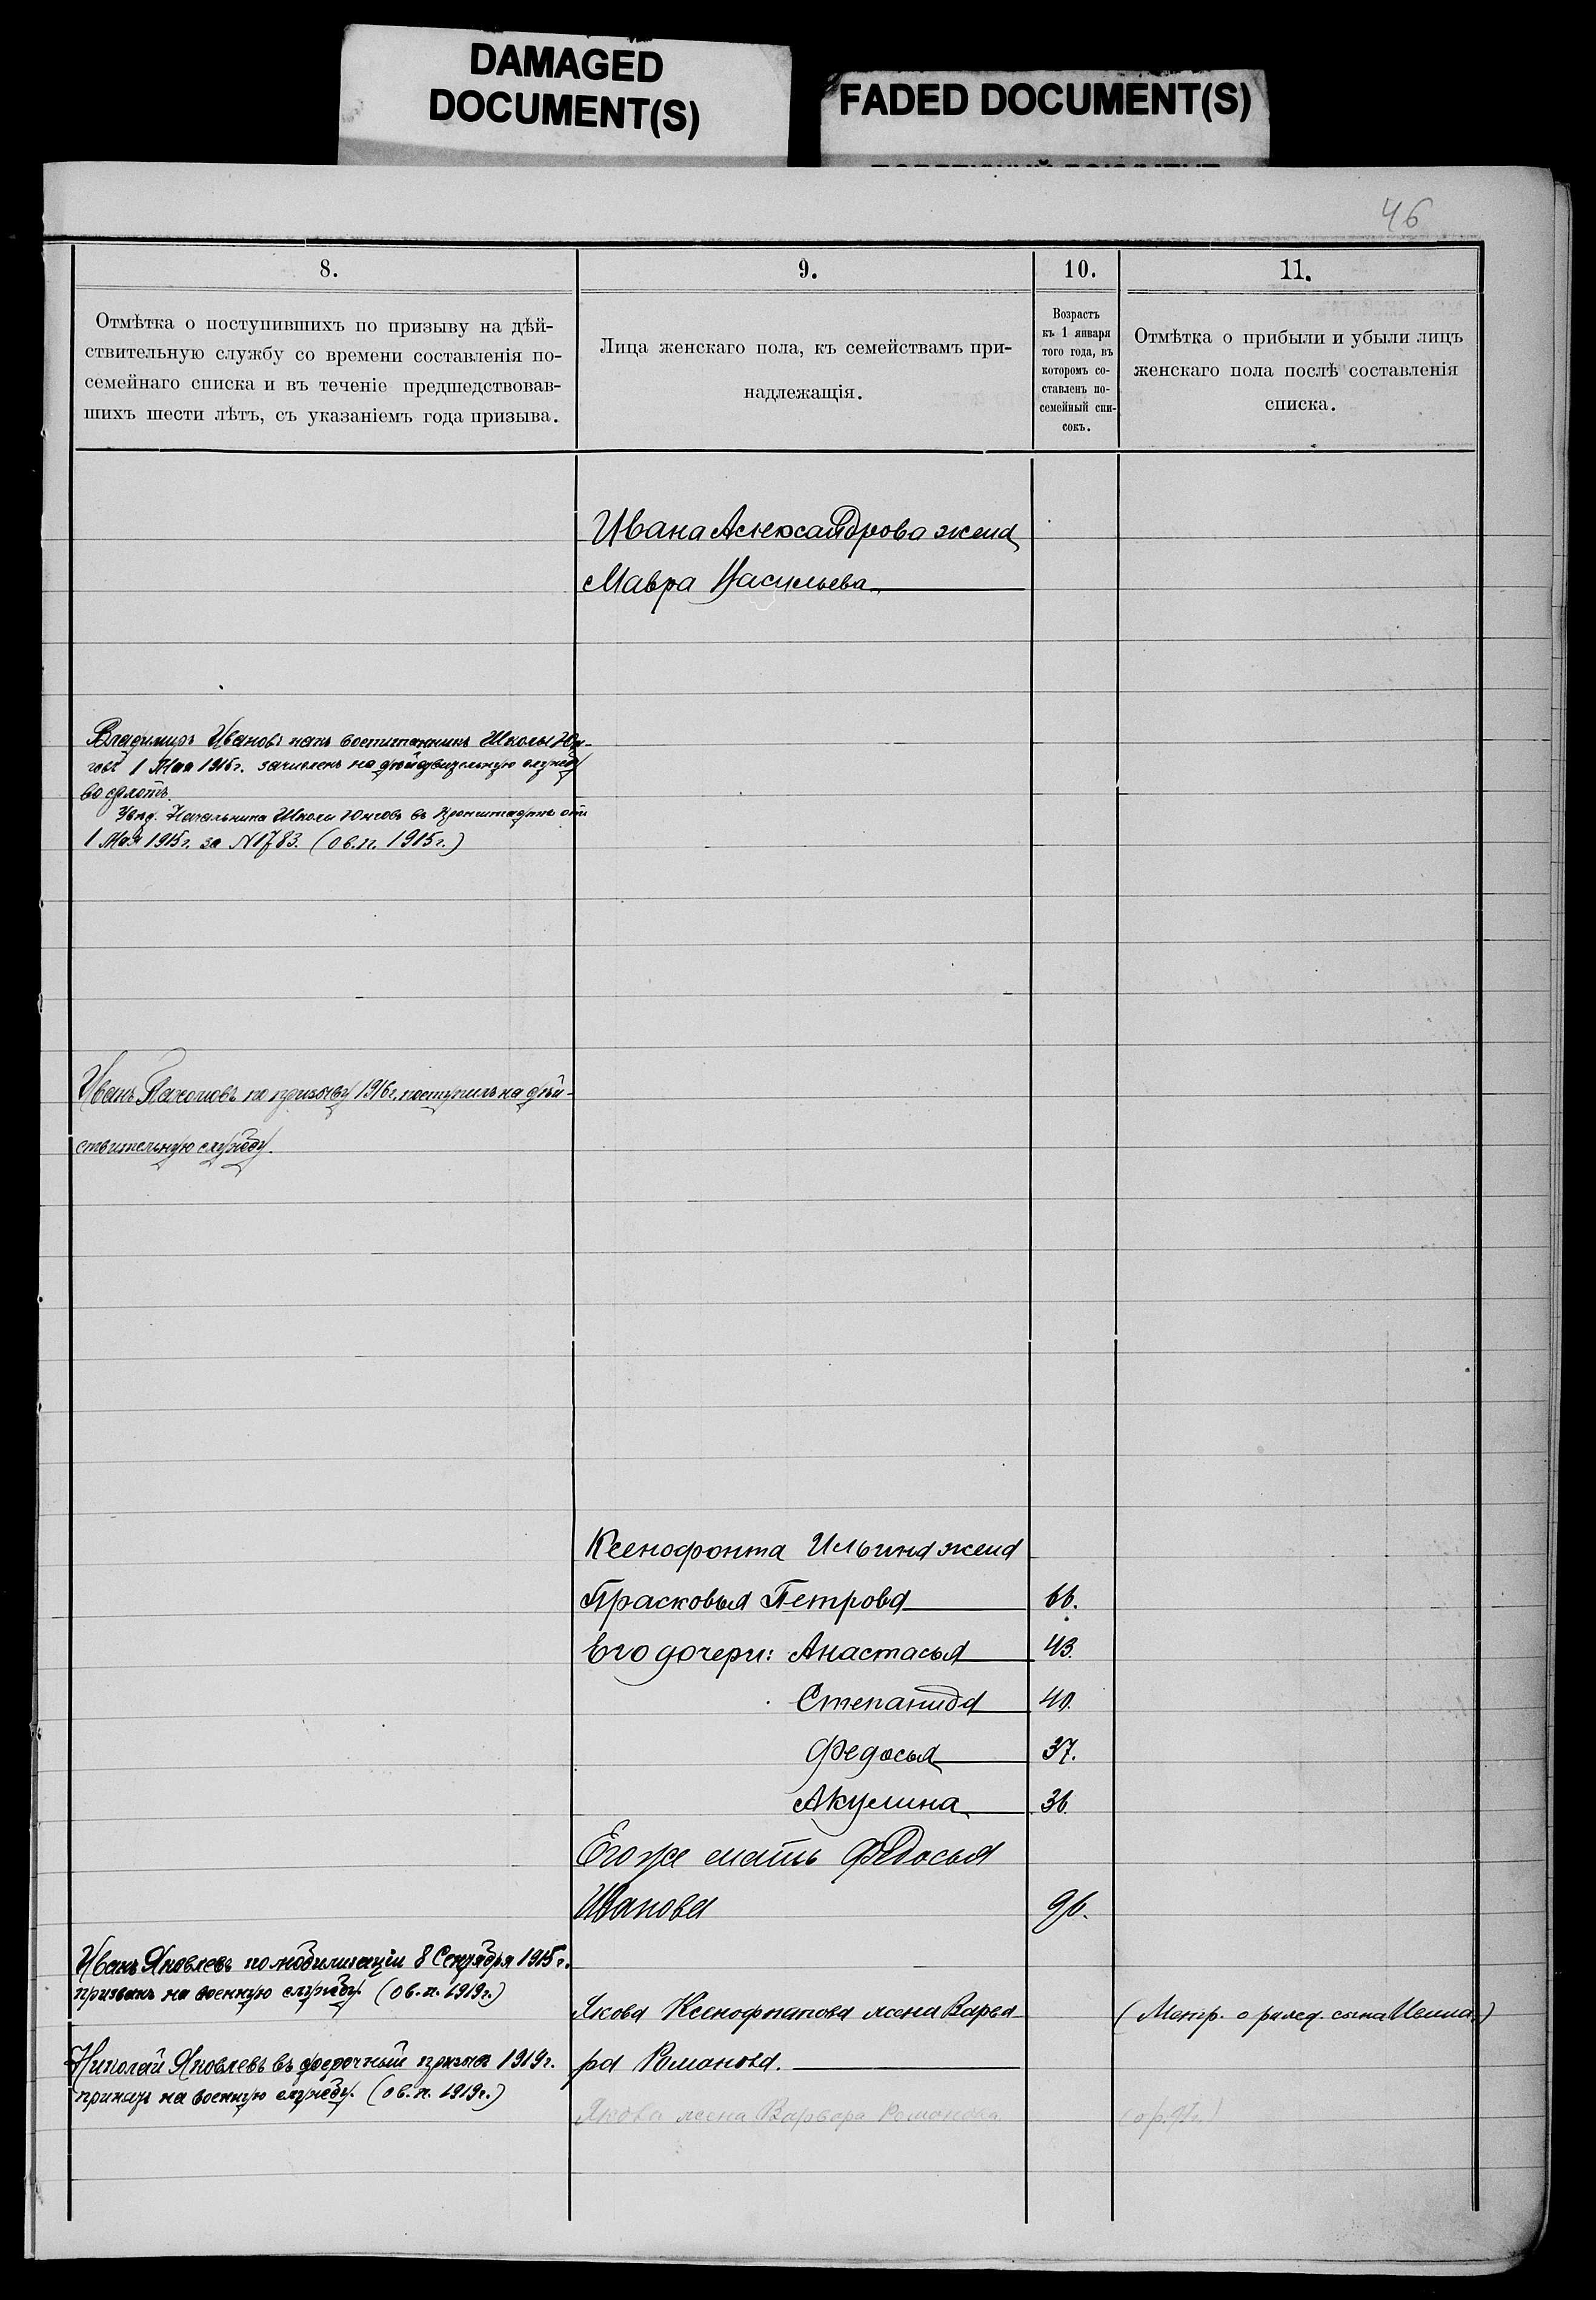 DAMAGED
DOCUMENT(S)
FADED DOCUMENT(S)
46
8.
Отмѣтка о поступившихъ по призыву на дѣй-
ствительную службу со времени составленія по-
семейнаго списка и въ теченіе предшедствовав-
шихъ шести лѣтъ, съ указаніемъ года призыва.
9.
Лица женскаго пола, къ семействамъ при-
надлежащія.
10.
Возрастъ
къ 1 января
того года, въ
которомъ со-
ставленъ по-
семейный спи-
сокъ.
11.
Отмѣтка о прибыли и убыли лицъ
женскаго пола послѣ составленія
списка.
Ивана Александрова жена
Мавра Васильева
Владимиръ Ивановъ какъ воспитанникъ Школы Юн-
говъ 1 Мая 1915г. зачисленъ на дѣйствительную службу
во флотъ.
Увед. Начальника Школы Юнговъ въ Кронштадтѣ отъ
1 Мая 1915г. за №1783. (ов.п. 1915г.)
Иванъ Пахомовъ по призыву 1916г. поступилъ на дѣй-
ствительную службу.
Ксенофонта Ильина жена
Прасковья Петрова 66.
Его дочери: Анастасья 43.
Степанида 40.
Федосья 37.
Акулина 36.
Его же мать Федосья
Иванова 96.
Иванъ Яковлевъ по мобилизаціи 8 Сентября 1915г.
призванъ на военную службу. (ов.п. 1919г.)
Якова Ксенофонтова жена Варва-
ра Романова.
(Метр. о рожд. сына)
Николай Яковлевъ въ досрочный призывъ 1919г.
принятъ на военную службу. (ов.п. 1919г.)
Якова жена Варвара Романова